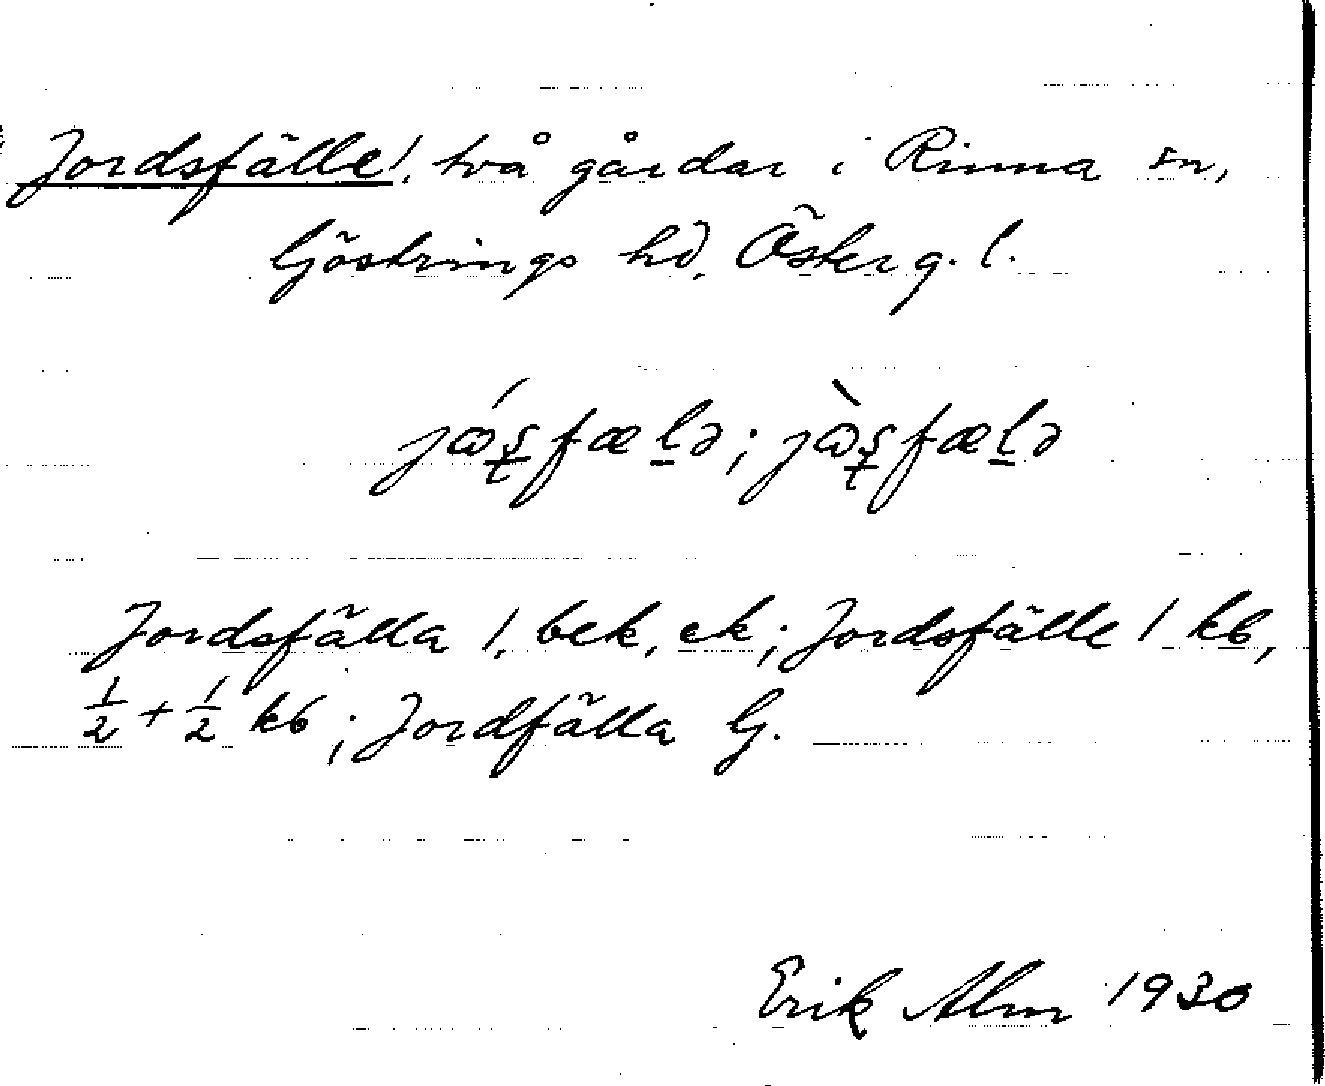 Jordsfälle 1, två gårdar i Rinna sn,
Göstrings hd, Österg. l.
Jordsfälla 1, bek, ek; Jordsfälle 1 kb,
½ + ½ kb; Jordfälla G.
Erik Alm 1930